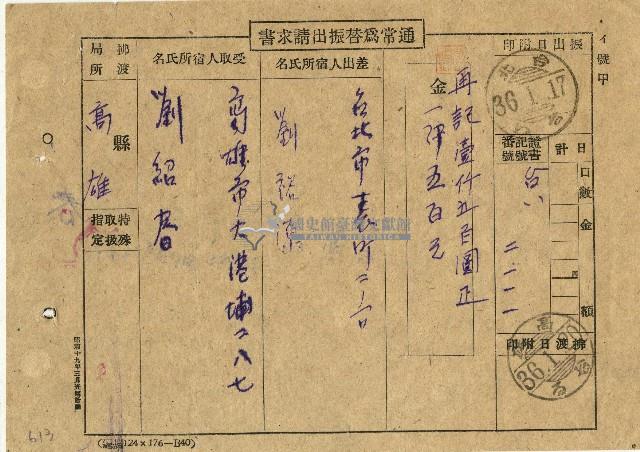 通常為替振出請求書
イ號甲
振出日附印
台北
36.1.17
證書
記號
番號
台八
二二一一
日計
口數
金額
拂渡日附印
高雄
36.1.20
金
再記壹仟五百圓正
一仟五百元
差出人宿所氏名
台北市表町二ノ六
劉
受取人宿所氏名
高雄市大港埔二八七
劉紹春
拂渡局所
高雄
縣
特殊取扱指定
國史館臺灣文獻館
TAIWAN HISTORICA
124×176—B40)
613